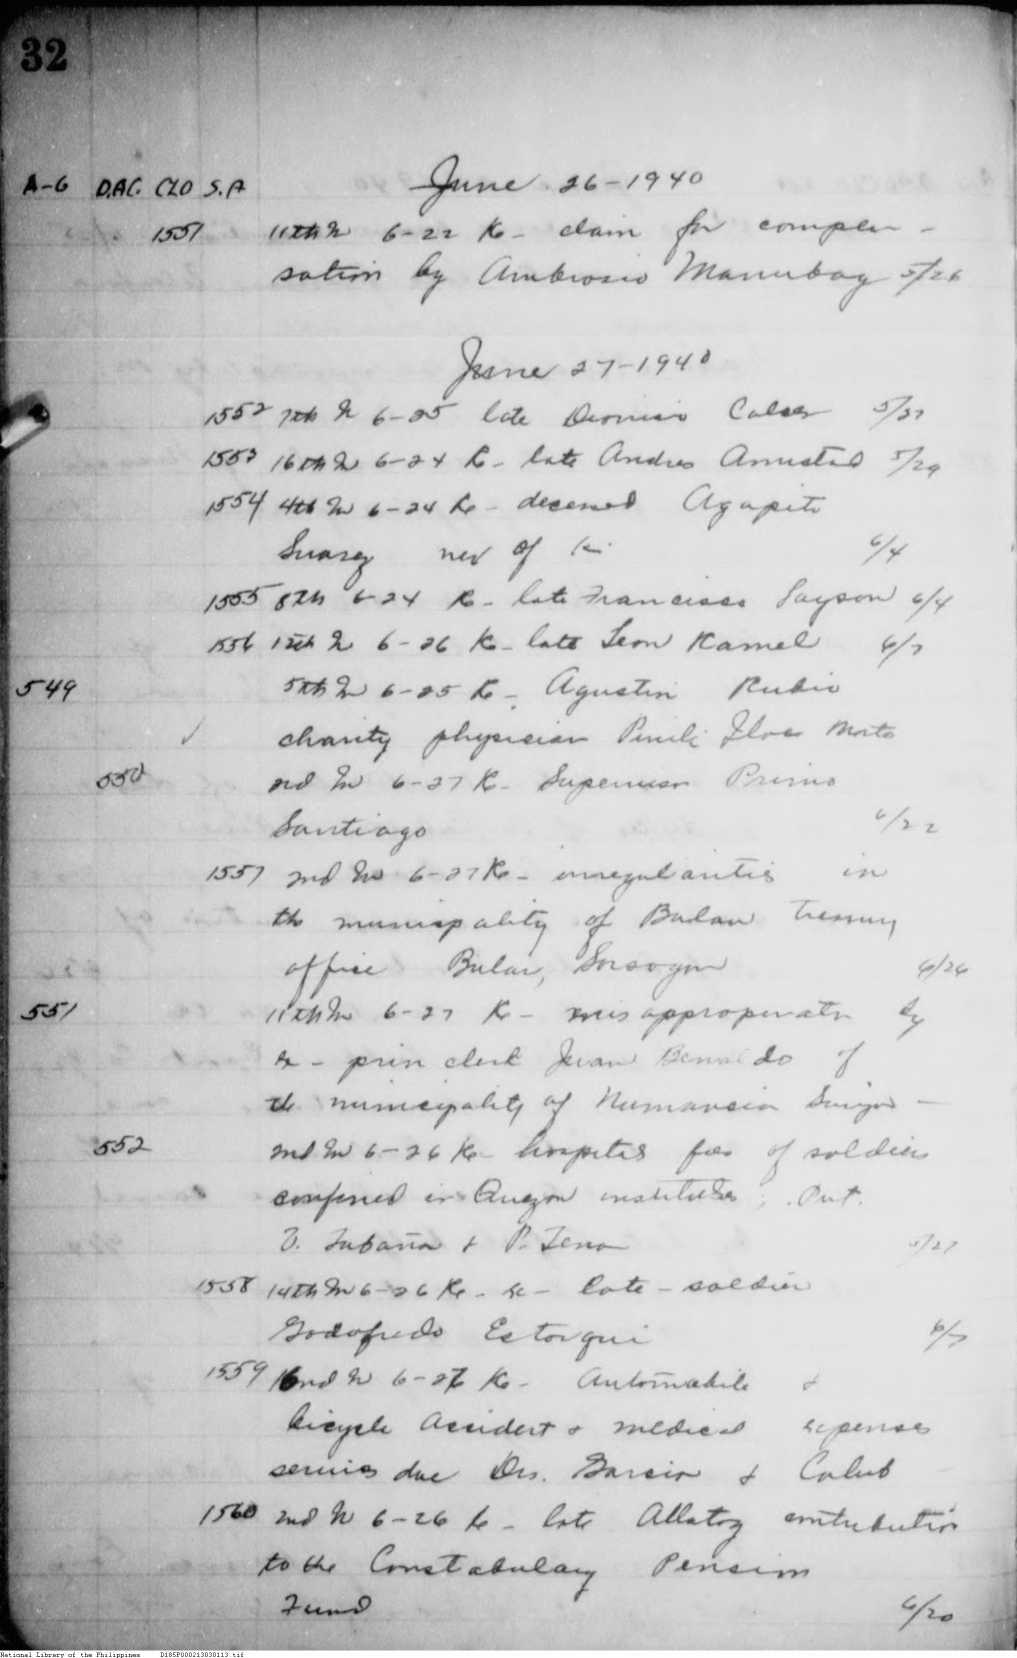 32
A-6 D.A.C. CLO S.A June 26-1940
1551 11th In 6-22 Re- claim for compen-
sation by Ambrosio Manubag 5/26
June 27-1940
1552 7th In 6-25 late Dionisio 5/27
1553 16th In 6-24 Re- late Andres 5/29
1554 4th In 6-24 Re- deceased Agapito
Suarez of 6/4
1555 8th 6-24 Re- late Francisco Sayson 6/4
1556 12th In 6-26 Re- late Leon Ramel 6/7
549 5th In 6-25 Re- Agustin Rubio
✓ charity physician Pinili Ilocos Norte
550 2nd In 6-27 Re- Supervisor Primo
Santiago 6/22
1557 2nd In 6-27 Re- irregularities in
the municipality of Bulan treasury
office Bulan, Sorsogon 6/26
551 11th In 6-27 Re- misappropriatn by
ex- prin clerk Juan of
the municipality of Numancia Surigao -
552 2nd In 6-26 Re- hospital fees of soldiers
confined in Quezon institutes; Pvt.
+ P. 5/27
1558 14th In 6-26 Re- re- late - soldier
Godofredo Estorqui 6/7
1559 2nd In 6-26 Re- Automobile +
bicycle accident + medical expenses
services due Drs. Garcia +
1560 2nd In 6-26 Re- late contribution
to the Constabulary Pension
Fund 6/20
National Library of the Philippines D185P000213030113.tif